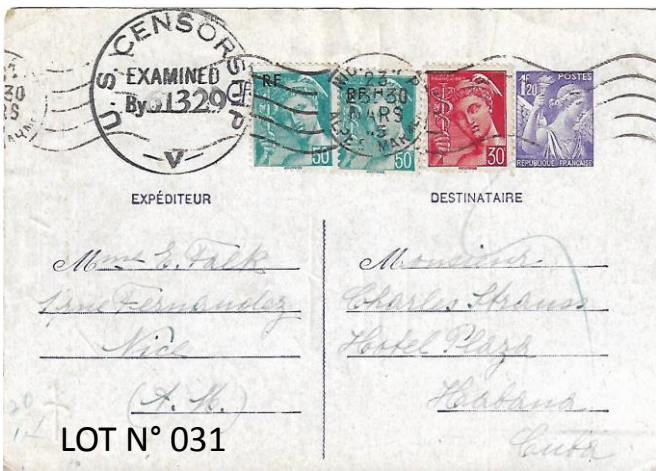 U.S. CENSORSHIP
EXAMINED
By 1329
RF
50
RF
50
23
MARS
30
1F20
POSTES
REPUBLIQUE FRANÇAISE
EXPÉDITEUR
Mme E. Falk
1 rue Fernandez
Nice
(A. M.)
DESTINATAIRE
Monsieur
Charles Strauss
Hotel Plaza
Habana
Cuba
LOT N° 031